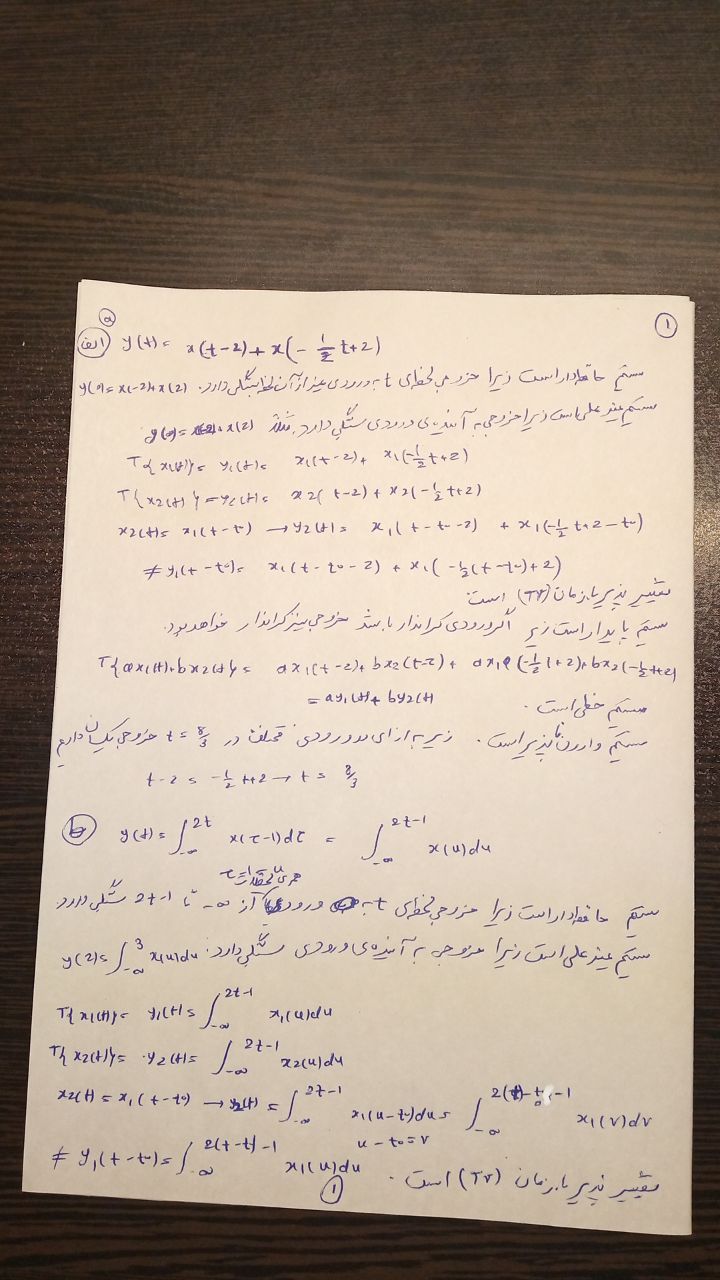 ①
ⓐ
الف y(t) = x(t-2) + x(-1/2 t+2)
سیستم حافظه‌دار است زیرا خروجی لحظه‌ی t به ورودی غیر از آن لحظه بستگی دارد. y(0) = x(-2)+x(2)
سیستم غیر علی است زیرا خروجی به آینده‌ی ورودی بستگی دارد. مثلا y(0) = x(-2)+x(2)
T{x1(t)} = y1(t) = x1(t-2) + x1(-1/2 t+2)
T{x2(t)} = y2(t) = x2(t-2) + x2(-1/2 t+2)
x2(t) = x1(t-t0) → y2(t) = x1(t-t0-2) + x1(-1/2 t+2-t0)
≠ y1(t-t0) = x1(t-t0-2) + x1(-1/2(t-t0)+2)
تغییر پذیر با زمان (TV) است
سیستم پایدار است زیرا اگر ورودی کراندار باشد خروجی نیز کراندار خواهد بود.
T{ax1(t)+bx2(t)} = ax1(t-2)+bx2(t-2) + ax1(-1/2 t+2)+bx2(-1/2 t+2)
= ay1(t) + by2(t)
سیستم خطی است.
سیستم وارون ناپذیر است. زیرا به ازای دو ورودی مختلف در t = 8/3 خروجی یکسان داریم
t-2 = -1/2 t+2 → t = 8/3
ⓑ y(t) = ∫_{-∞}^{2t} x(τ-1)dτ = ∫_{-∞}^{2t-1} x(u)du
τ-1=u
سیستم حافظه‌دار است زیرا خروجی لحظه‌ی t به ورودی از -∞ تا 2t-1 بستگی دارد.
سیستم غیر علی است زیرا خروجی به آینده‌ی ورودی بستگی دارد: y(2) = ∫_{-∞}^{3} x(u)du
T{x1(t)} = y1(t) = ∫_{-∞}^{2t-1} x1(u)du
T{x2(t)} = y2(t) = ∫_{-∞}^{2t-1} x2(u)du
x2(t) = x1(t-t0) → y2(t) = ∫_{-∞}^{2t-1} x1(u-t0)du = ∫_{-∞}^{2t-t0-1} x1(v)dv
u-t0=v
≠ y1(t-t0) = ∫_{-∞}^{2(t-t0)-1} x1(u)du
تغییر پذیر با زمان (TV) است.
①